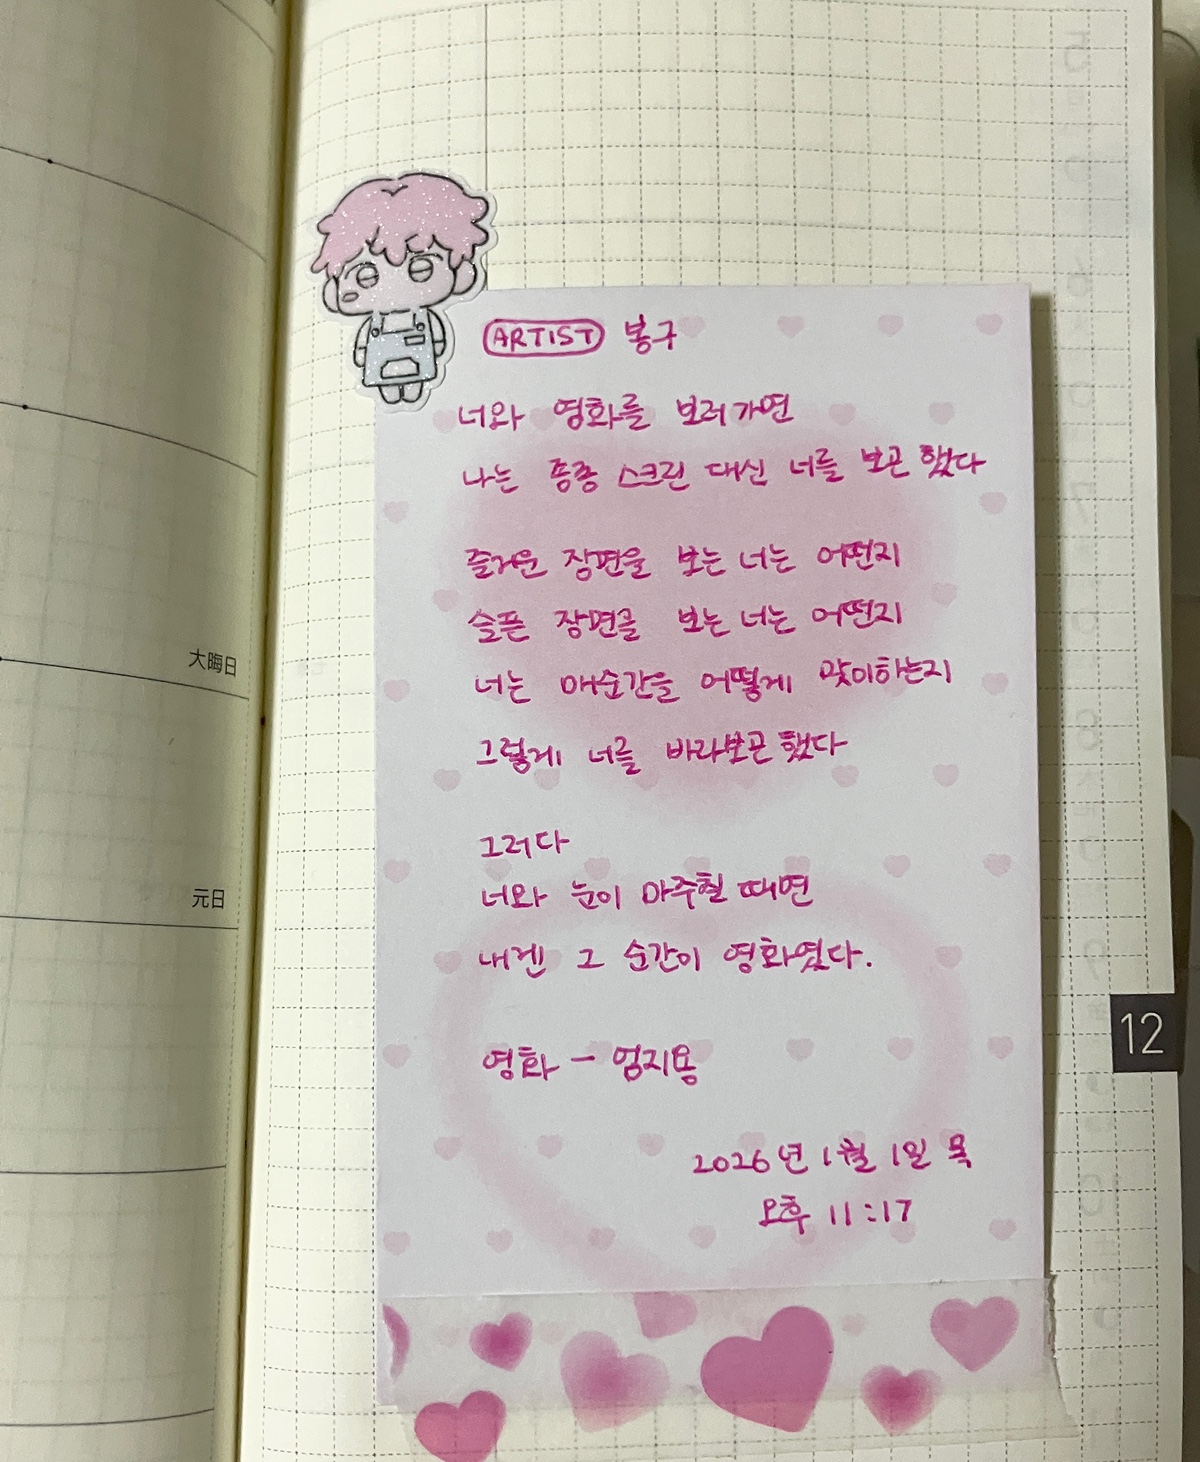 大晦日
元日
ARTIST 봉구
너와 영화를 보러가면
나는 종종 스크린 대신 너를 보곤 했다
즐거운 장면을 보는 너는 어떤지
슬픈 장면을 보는 너는 어떤지
너는 매순간을 어떻게 맞이하는지
그렇게 너를 바라보곤 했다
그러다
너와 눈이 마주칠 때면
내겐 그 순간이 영화였다.
영화 - 엄지용
2026년 1월 1일 목
오후 11:17
12